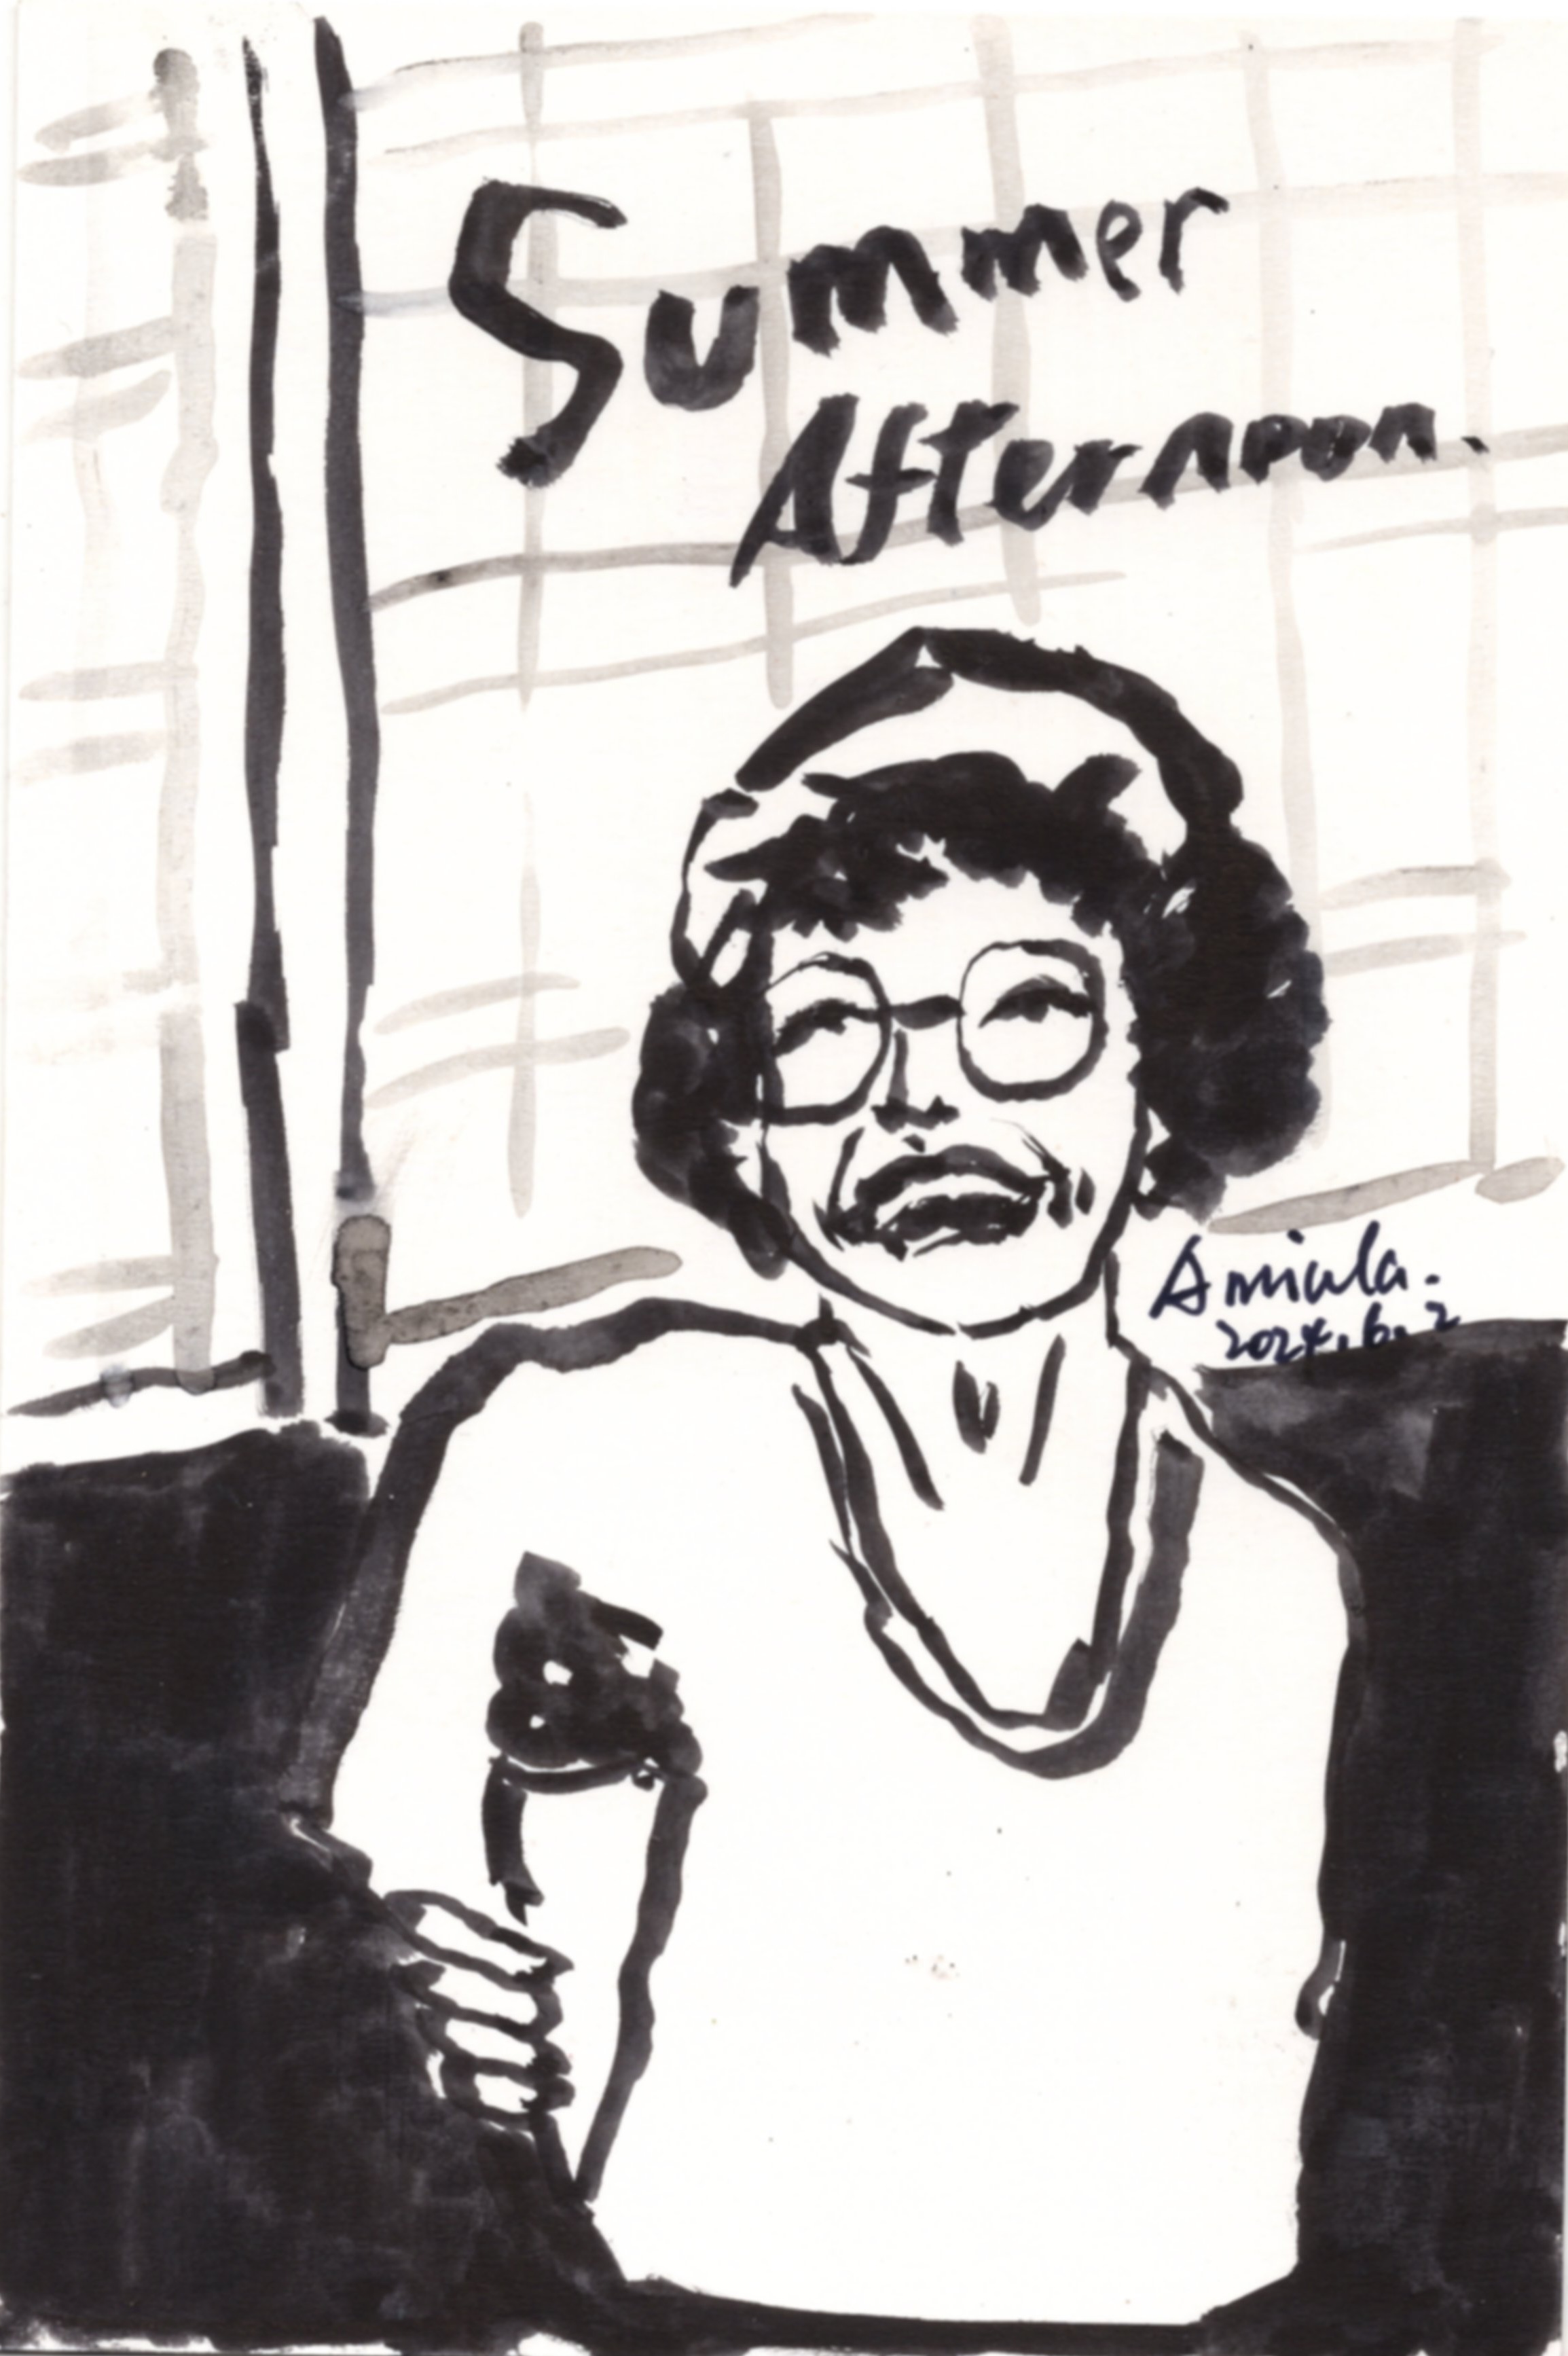 Summer
Afternoon.
Amiula.
2024.6.2